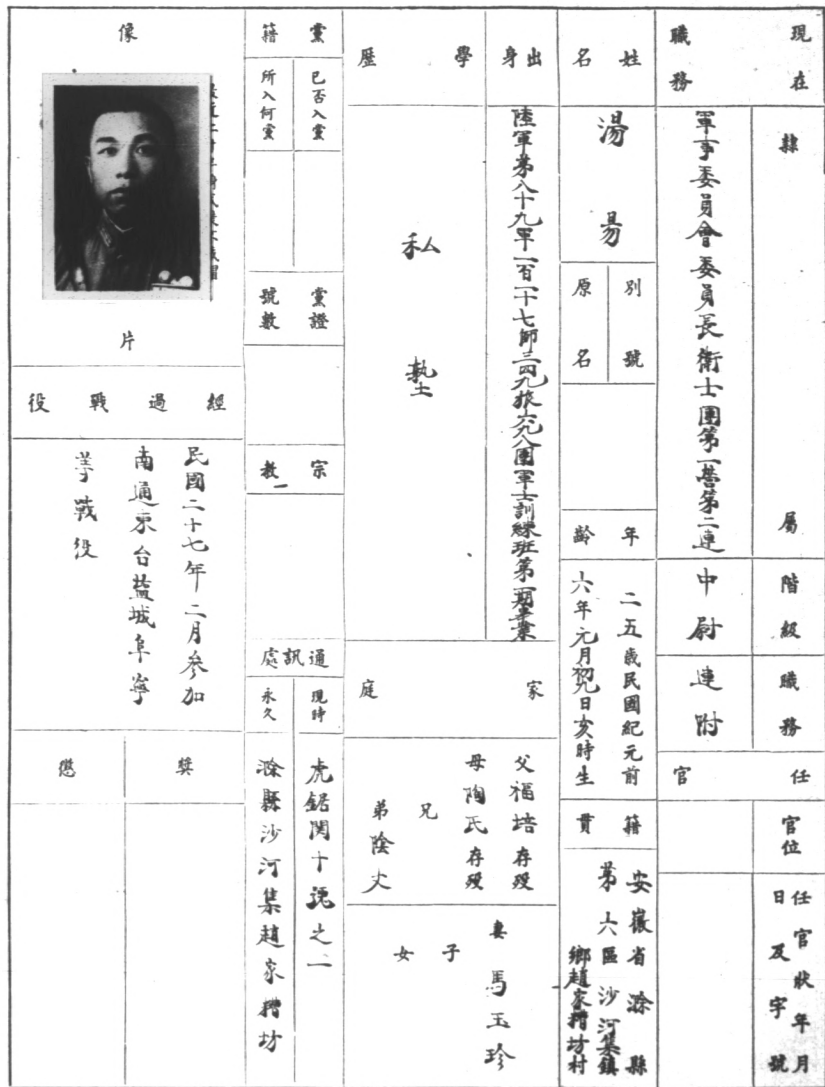 現在職務
隸屬
軍事委員會委員長衛士團第一營第二連
階級
中尉
職務
連附
任官
官位
任官狀年月日及字號
姓名
湯易
別號
原名
年齡
二五歲民國紀元前
六年元月初九日亥時生
籍貫
安徽省滁縣
第六區沙河集鎮
鄉趙家糟坊村
出身
陸軍第八十九軍一百一十七師三四九旅六九八團軍士訓練班第一期畢業
學歷
私塾
家庭
父福培存歿
母陶氏存歿
兄
弟陰文
妻馬玉珍
子
女
黨籍
已否入黨
所入何黨
黨證號數
宗教
通訊處
現時
虎鋸関十號之二
永久
滁縣沙河集趙家糟坊
像片
經過戰役
民國二十七年二月參加
南通東台鹽城阜寧
等戰役
獎
懲